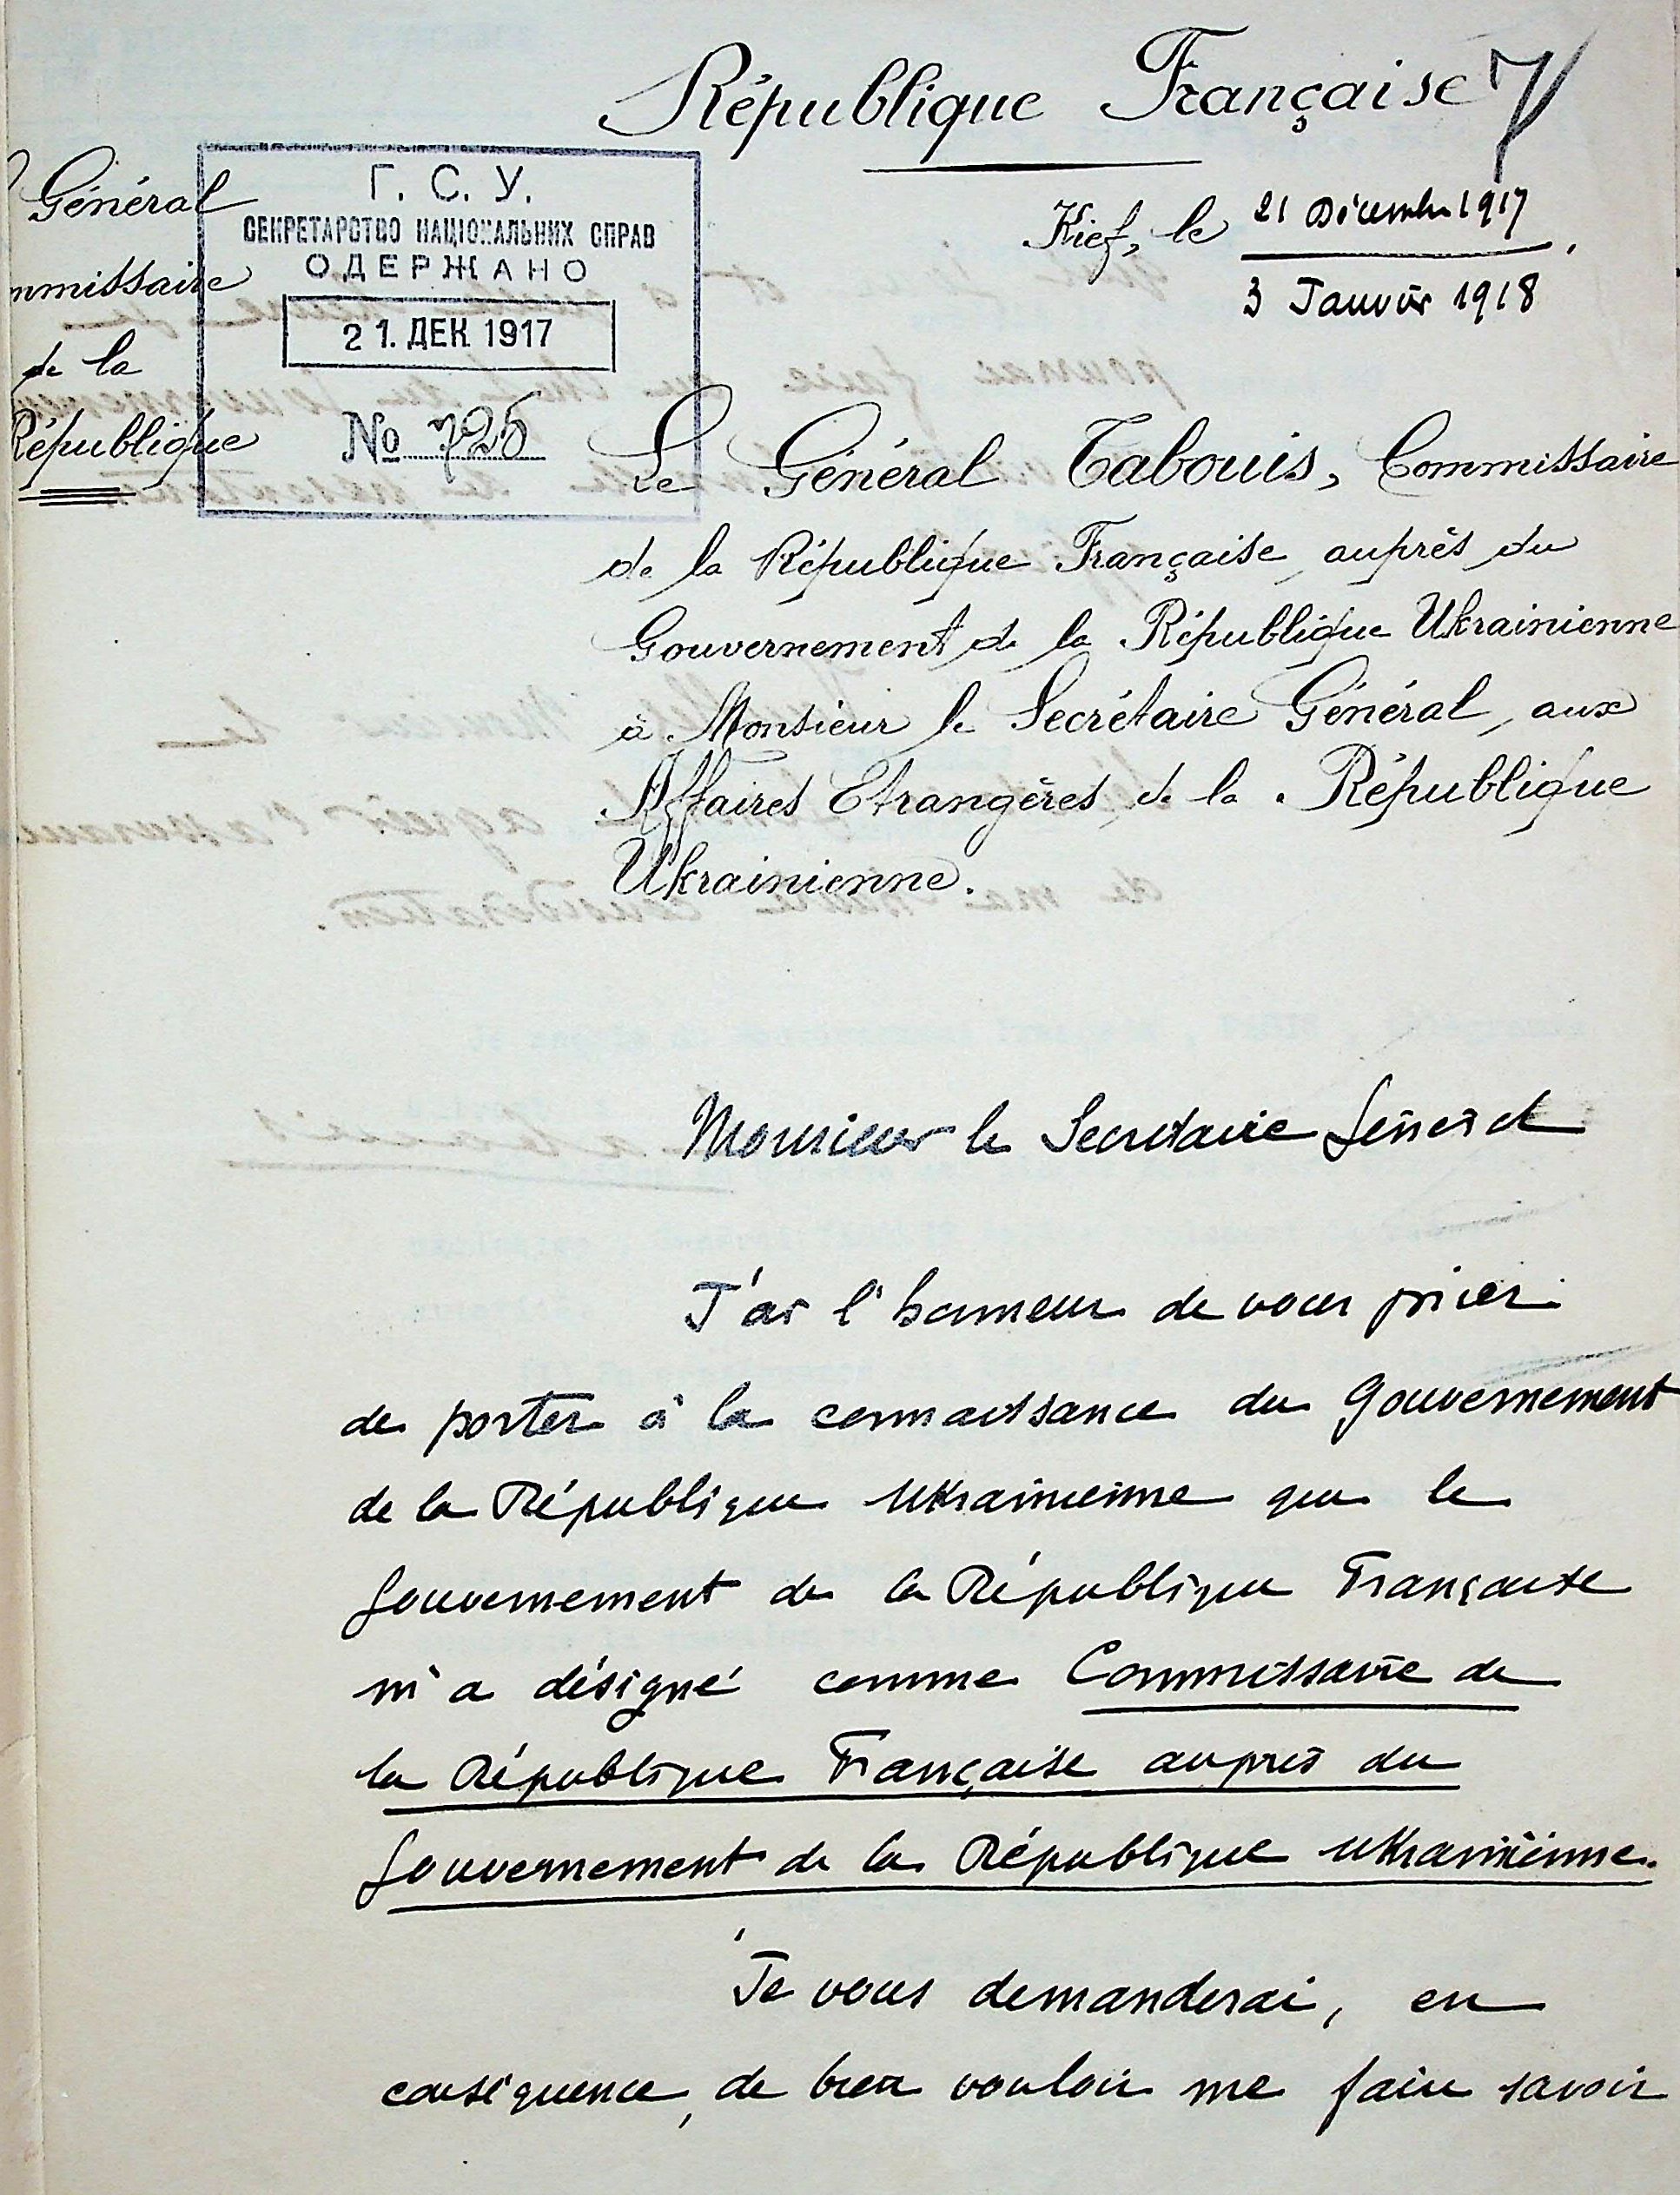 République Française 7
Général
mmissaire
de la
République
Г. С. У.
СЕКРЕТАРСТВО НАЦІОНАЛЬНИХ СПРАВ
ОДЕРЖАНО
21. ДЕК 1917
№ 725
Kief, le 21 Décembre 1917.
3 Janvier 1918
Le Général Tabouis, Commissaire
de la République Française auprès du
Gouvernement de la République Ukrainienne
à Monsieur le Secrétaire Général, aux
Affaires Etrangères de la République
Ukrainienne.
Monsieur le Secrétaire Général
J'ai l'honneur de vous prier
de porter à la connaissance du Gouvernement
de la République Ukrainienne que le
Gouvernement de la République Française
m'a désigné comme Commissaire de
la République Française auprès du
Gouvernement de la République Ukrainienne.
Je vous demanderai, en
conséquence, de bien vouloir me faire savoir